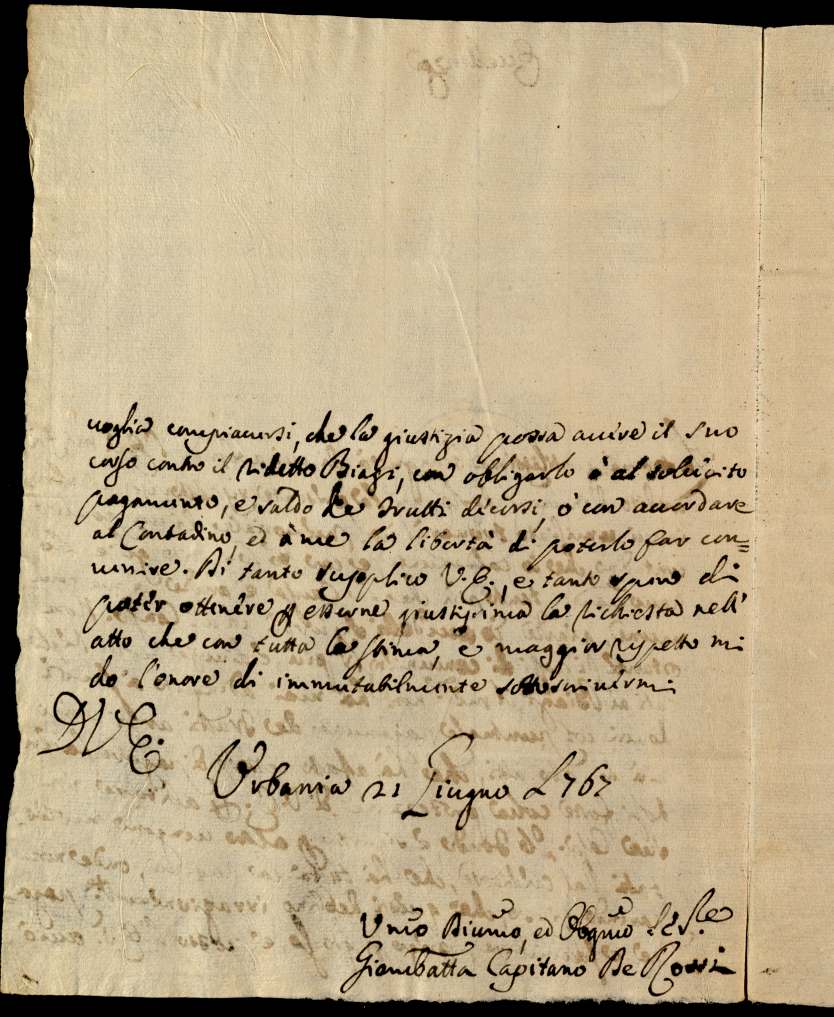 voglia compiacersi, che la giustizia possa avere il suo
corso contro il ridetto Biagi, con obligarlo ò al sollecito
pagamento, e saldo de frutti decorsi, ò con accordare
al Contadino, ed à me la libertà di poterlo far con=
venire. Di tanto supplico V.E., e tanto spero di
poter ottenere p esserne giustissima la richiesta nell'
atto che con tutta la stima, e maggior rispetto mi
do l'onore di immutabilmente sottoscrivermi
D V E.
Urbania 21 Giugno 1767
Umo Divmo, ed Obgmo Se Re
Giombatta Capitano De Rossi